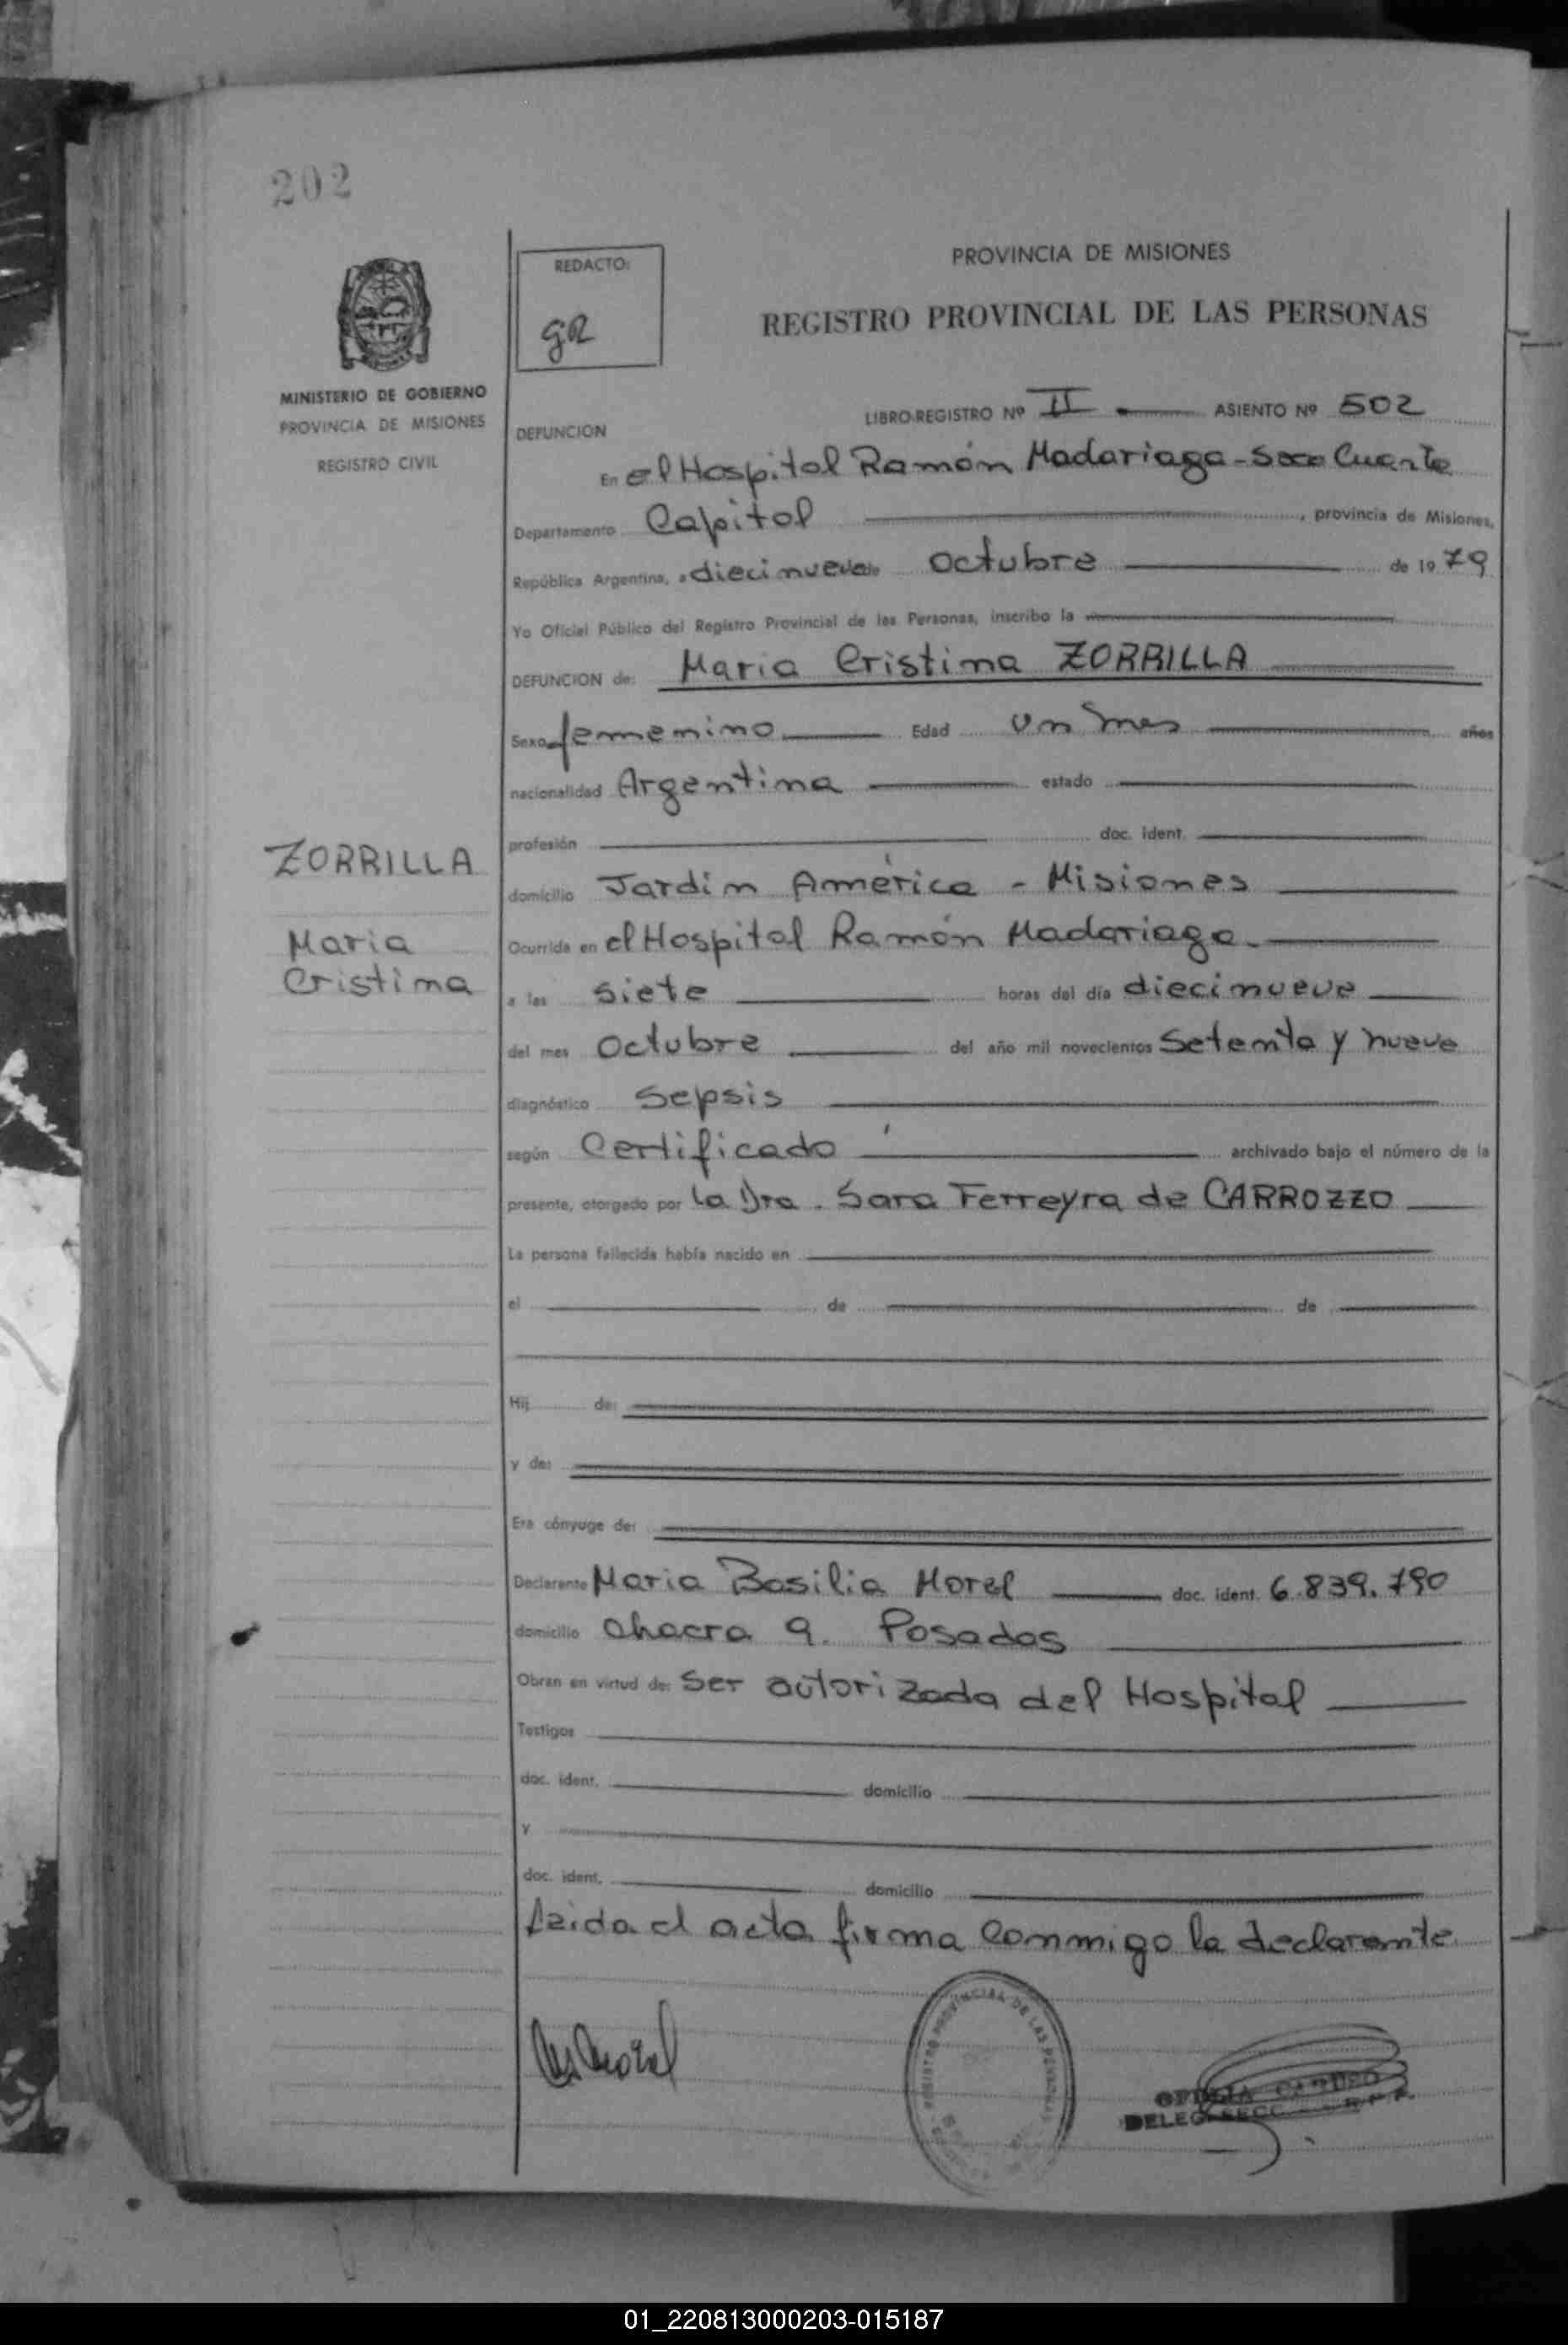 202
REDACTO:
gR
MINISTERIO DE GOBIERNO
PROVINCIA DE MISIONES
REGISTRO CIVIL
PROVINCIA DE MISIONES
REGISTRO PROVINCIAL DE LAS PERSONAS
LIBRO-REGISTRO Nº II ASIENTO Nº 502
DEFUNCION
En el Hospital Ramón Madariaga - Cuarta
Departamento Capital, provincia de Misiones,
República Argentina, a diecinueve de octubre de 1979
Yo Oficial Público del Registro Provincial de las Personas, inscribo la
DEFUNCION de: Maria Cristina ZORRILLA
Sexo femenino Edad un mes años
nacionalidad Argentina estado
profesión doc. ident.
ZORRILLA
Maria
Cristina
domicilio Jardin América - Misiones
Ocurrida en el Hospital Ramón Madariaga.
a las siete horas del día diecinueve
del mes octubre del año mil novecientos setenta y nueve
diagnóstico Sepsis
según Certificado archivado bajo el número de la
presente, otorgado por la Dra. Sara Ferreyra de CARROZZO
La persona fallecida había nacido en
el de de
Hij de:
y de:
Era cónyuge de:
Declarante Maria Basilia Morel doc. ident. 6.839.790
domicilio Chacra 9. Posadas
Obran en virtud de: Ser autorizada del Hospital
Testigos
doc. ident. domicilio
y
doc. ident. domicilio
Leida el acta firma conmigo la declarante
REGISTRO PROVINCIAL DE LAS PERSONAS
DELEG. SECC. R.P.P.
01_220813000203-015187